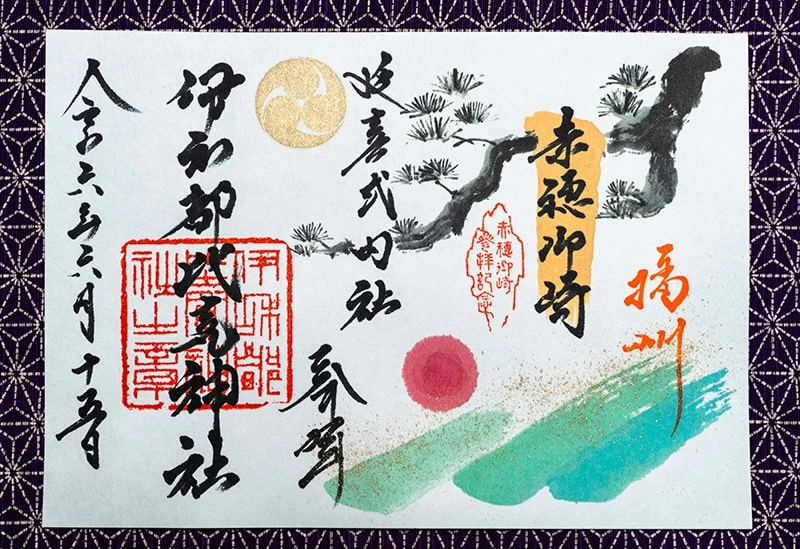 播州
赤穂御崎
赤穂御崎
參拝記念
延喜式内社
奉拝
伊和都比売神社
伊和都
社之章
令和六年六月十五日